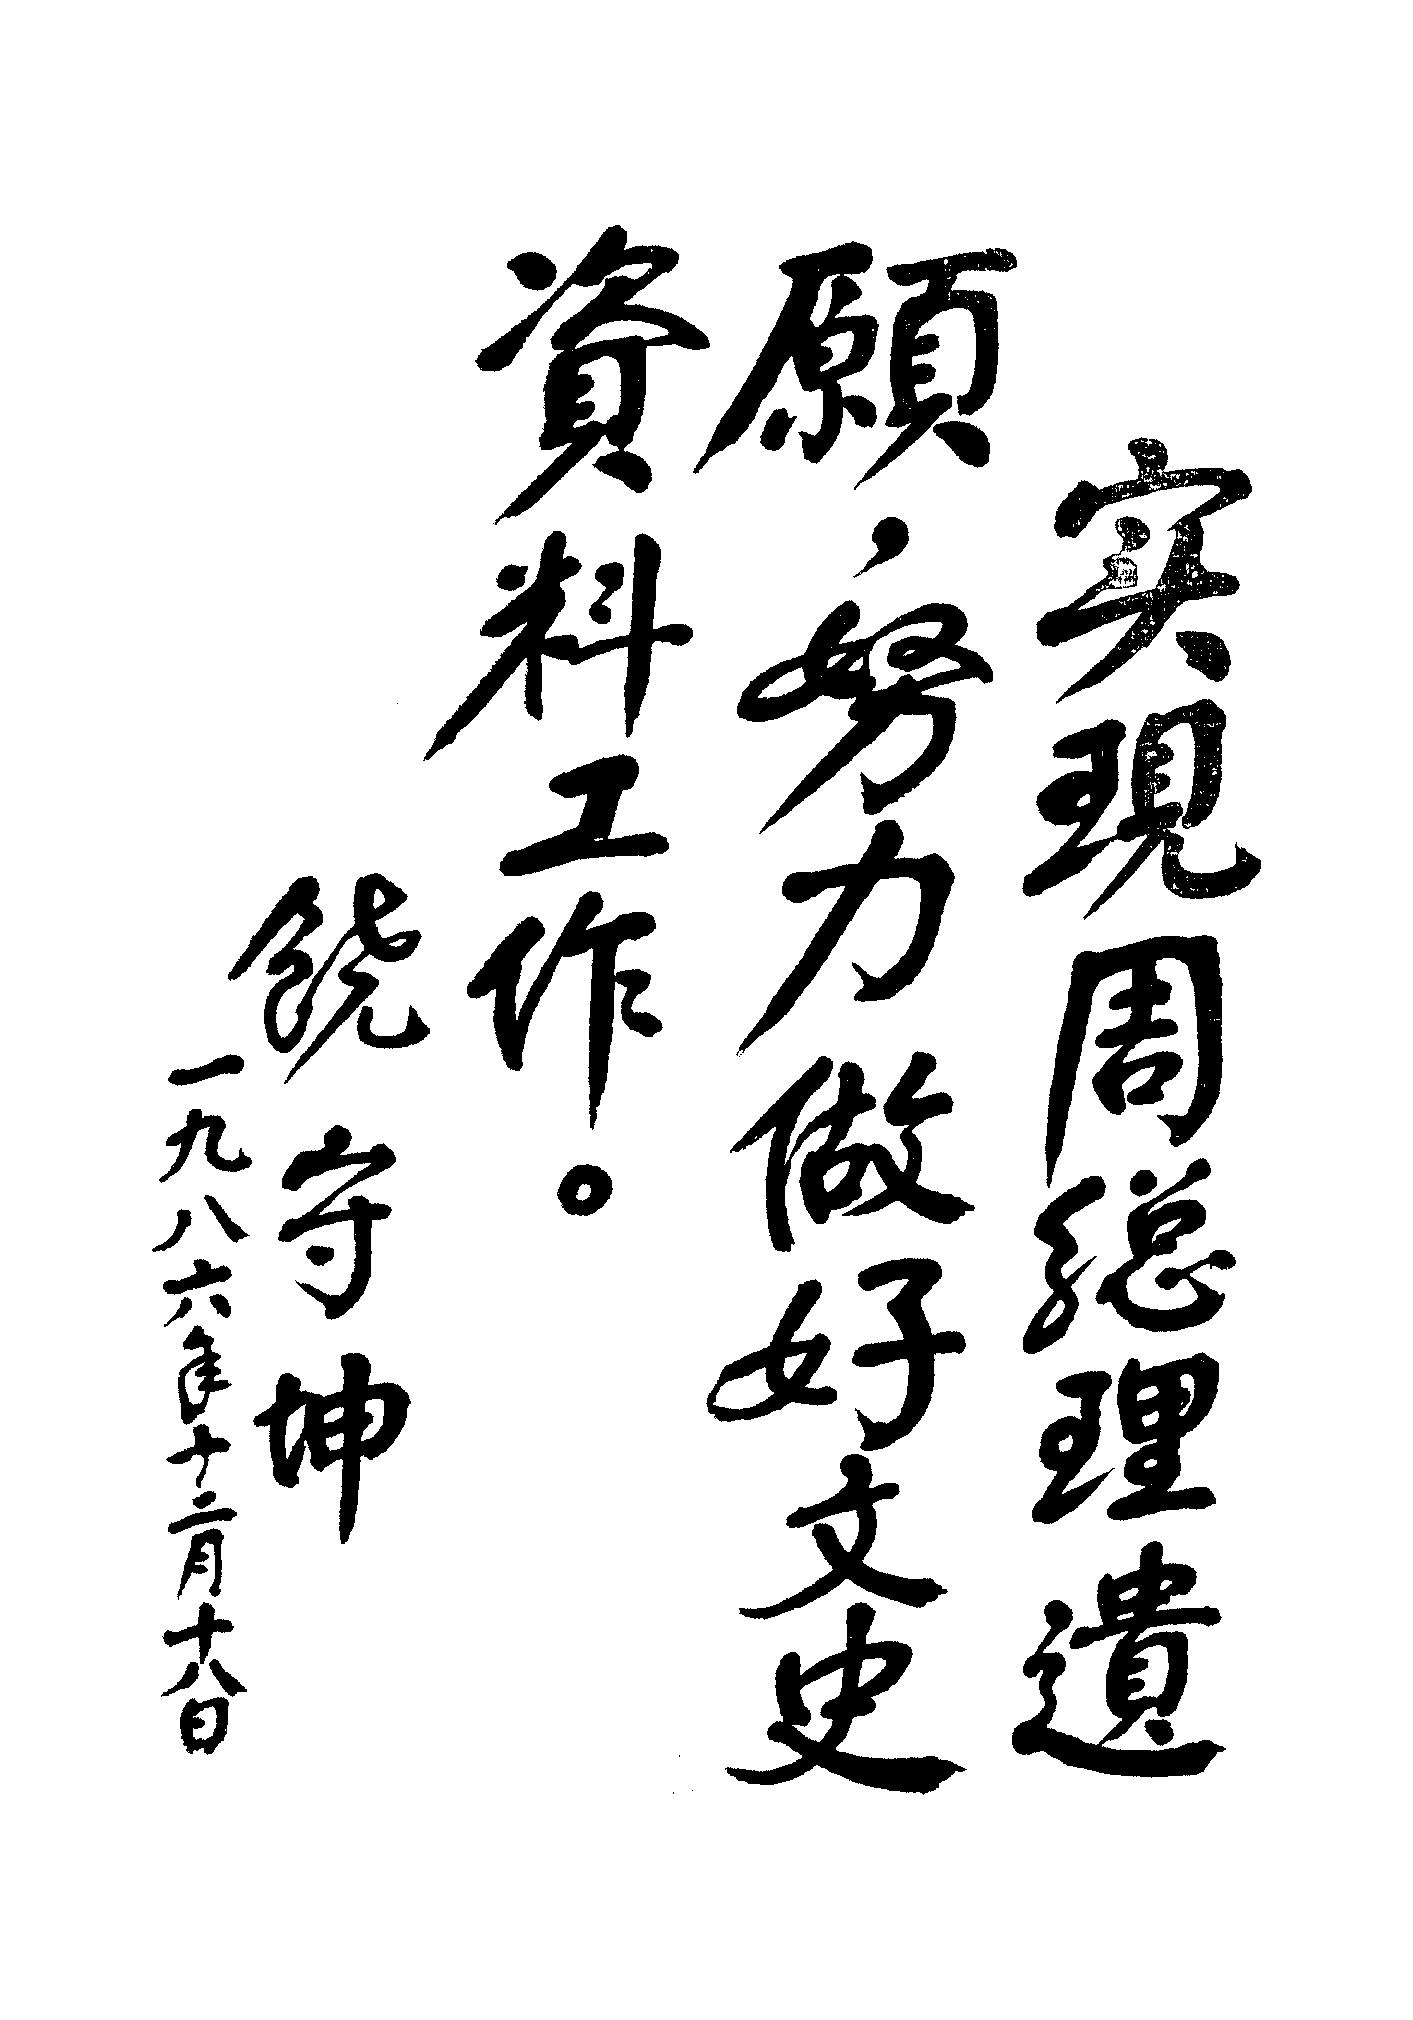 实現周総理遺
願，努力做好文史
資料工作。
饒守坤
一九八六年十二月十八日